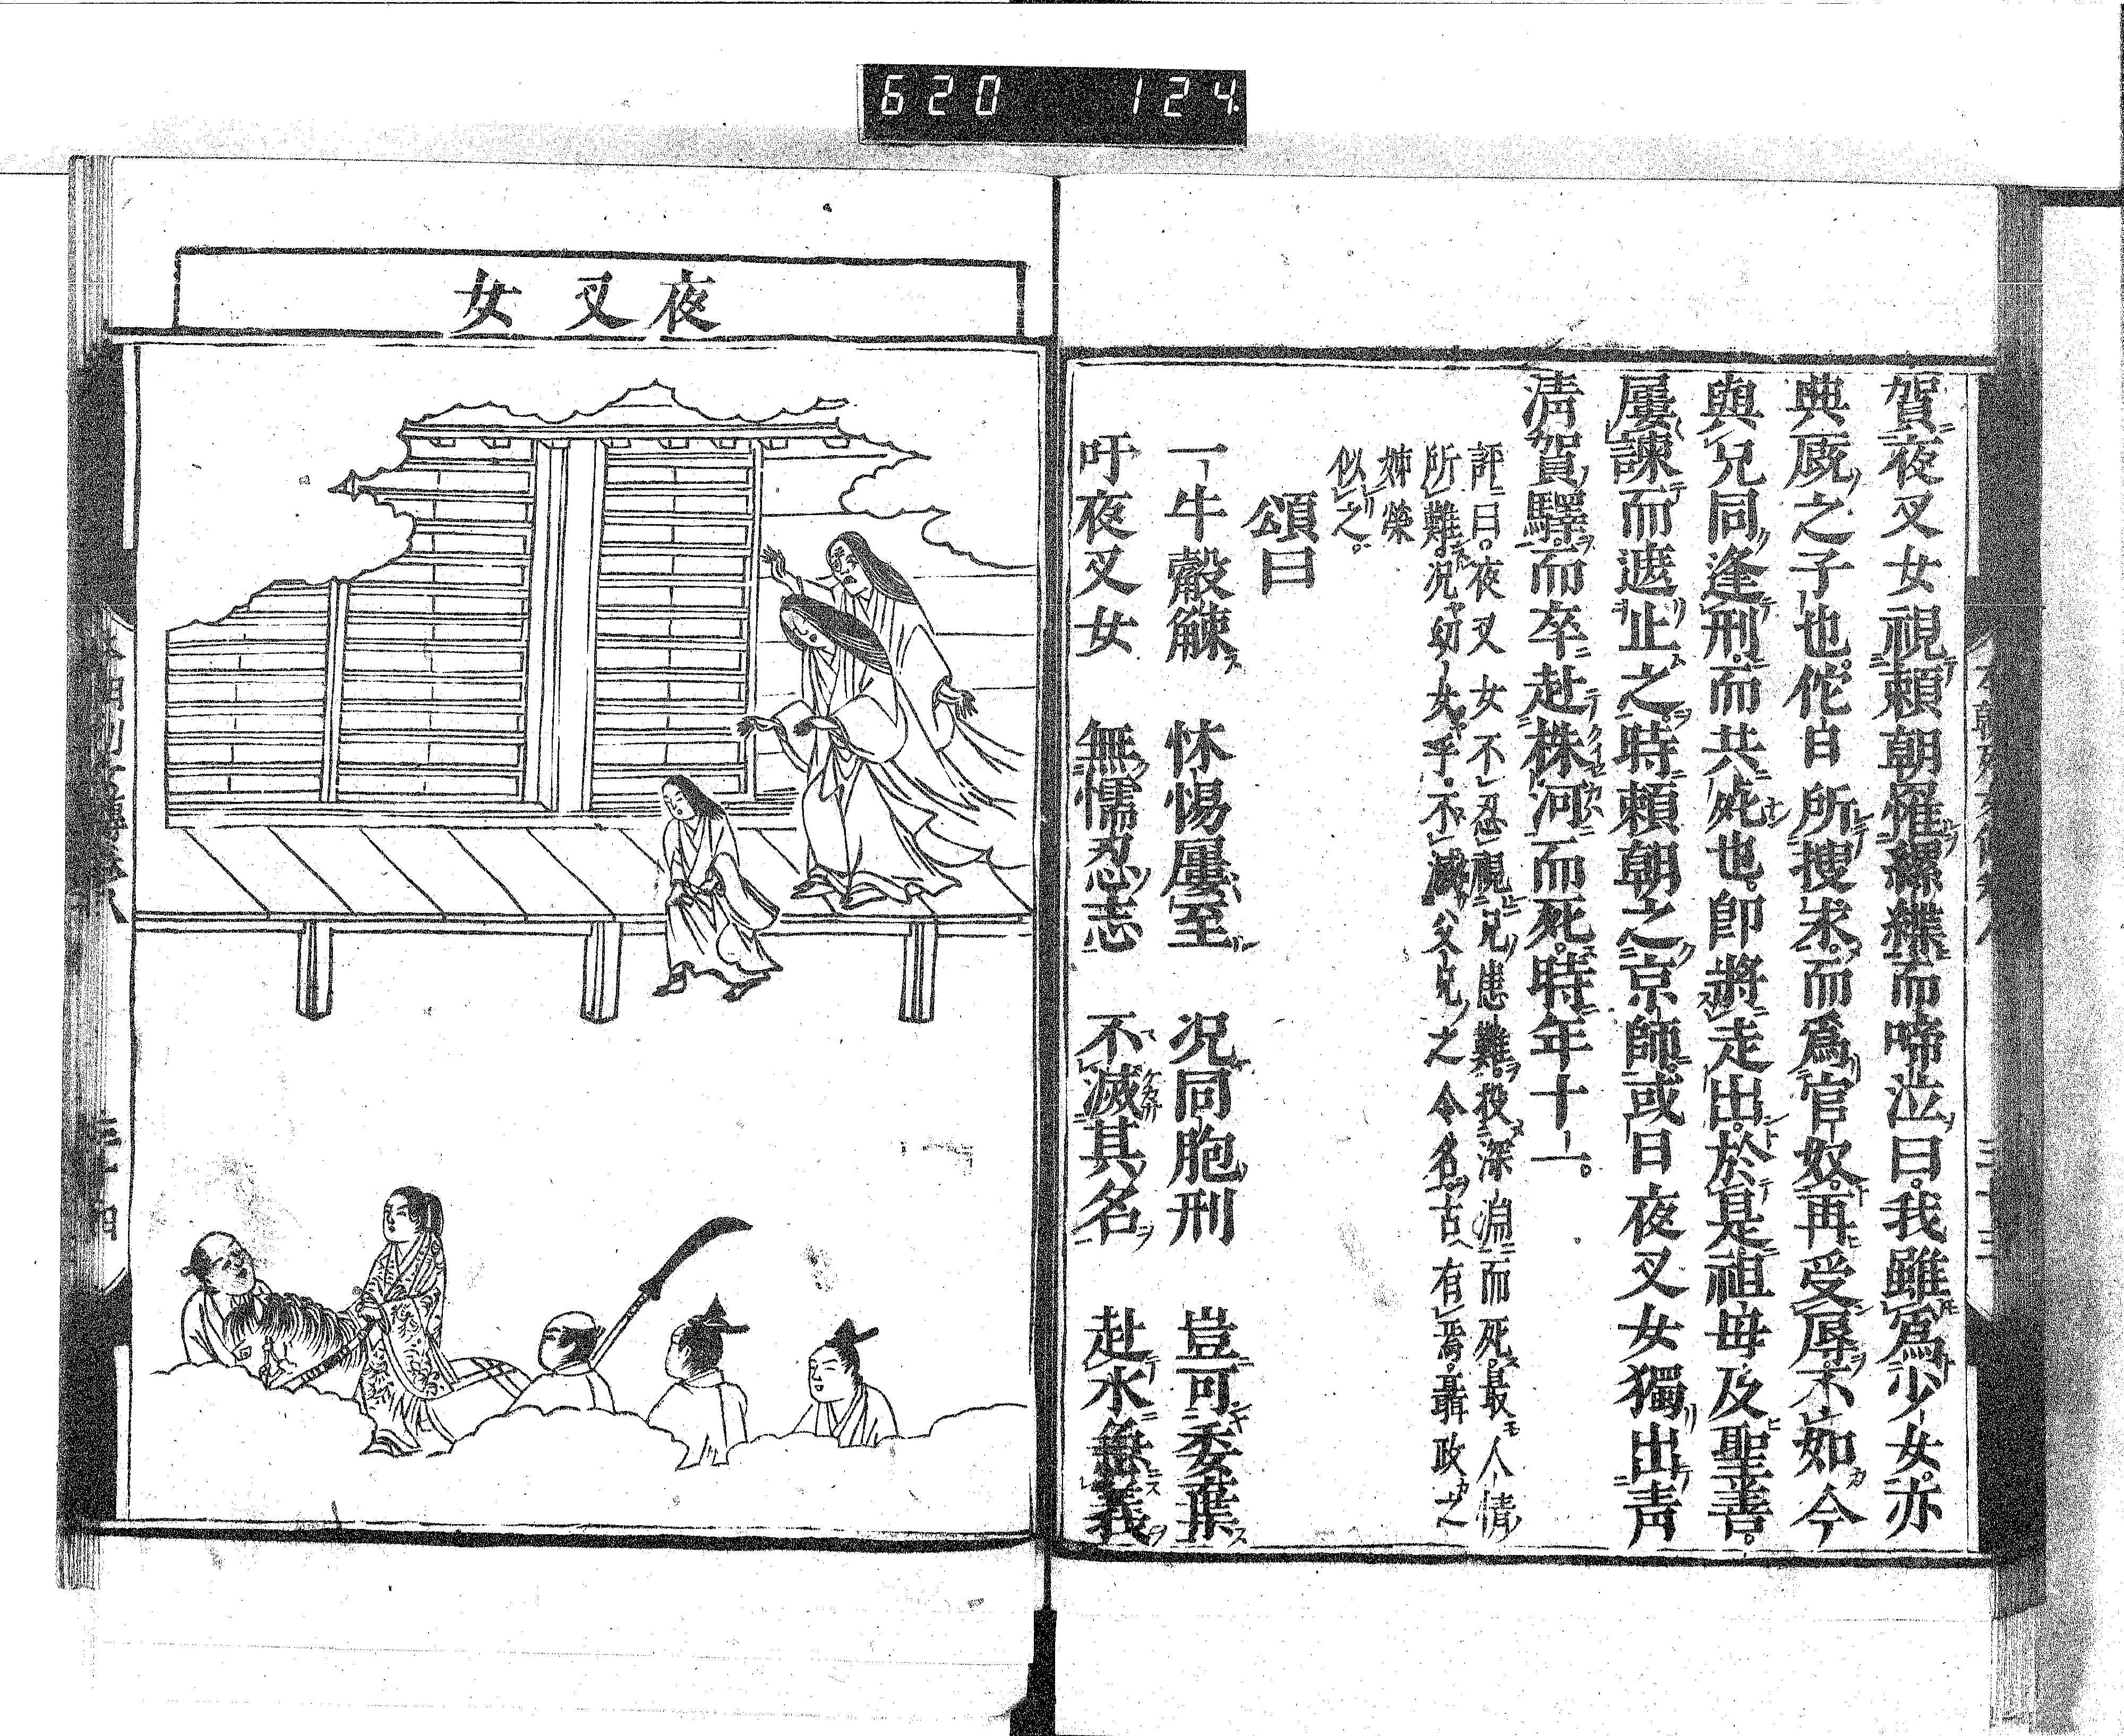 620 124
賀夜叉女視頼朝罹縲紲而啼泣曰我雖爲少女亦
典厩之子也佗日所搜求而爲官奴再受辱不如今
與兄同逢刑而共死也卽將走出於是祖母及聖善
屢諫而遮止之時頼朝之京師或曰夜叉女獨出靑
淸賀驛而卒赴株河而死時年十一
評曰夜叉女不忍視兄患難投深淵而死最人情
所難况幼女乎不滅父兄之令名古有焉聶政之
姉榮
似之
頌曰
一牛觳觫 怵惕屢至 况同胞刑 豈可委棄
吁夜叉女 無懦忍志 不滅其名 赴水無義
夜叉女